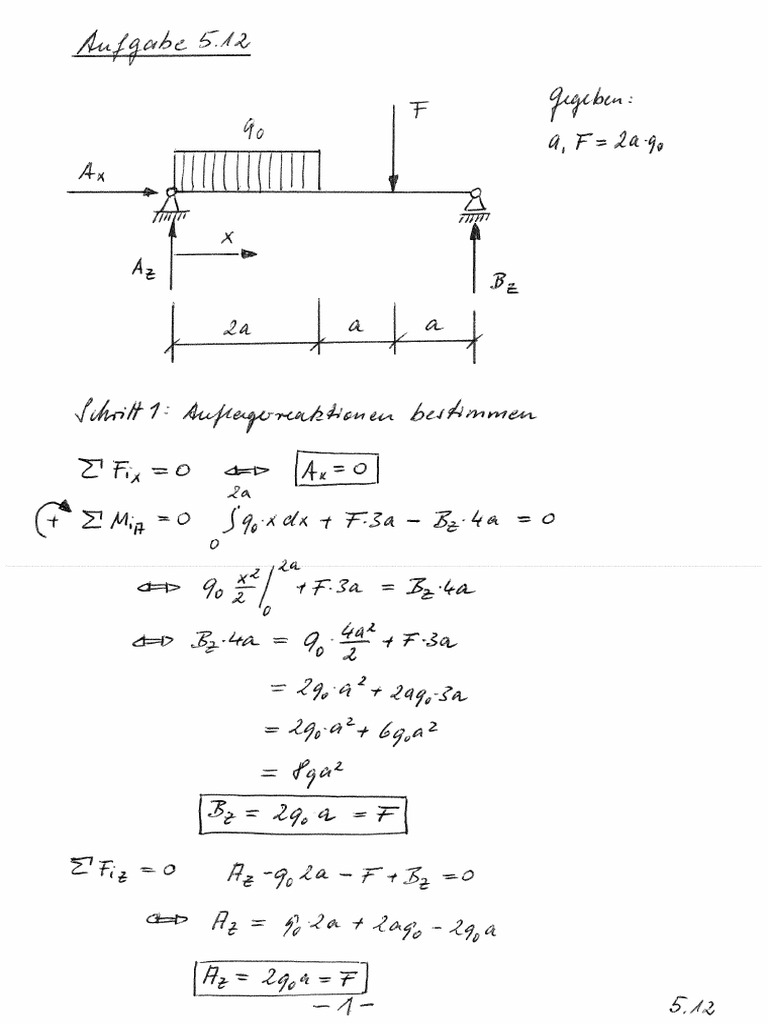 Aufgabe 5.12
gegeben:
a, F = 2a·q₀
F
q₀
Aₓ
x
A_z
B_z
2a a a
Schritt 1: Auflagerreaktionen bestimmen
Σ F_ix = 0 ⇔ Aₓ = 0
↷+ Σ M_iA = 0 ∫₀²ᵃ q₀·x dx + F·3a − B_z·4a = 0
⇔ q₀ x²/2 |₀²ᵃ + F·3a = B_z·4a
⇔ B_z·4a = q₀·4a²/2 + F·3a
= 2q₀·a² + 2aq₀·3a
= 2q₀·a² + 6q₀a²
= 8qa²
B_z = 2q₀a = F
Σ F_iz = 0 A_z − q₀2a − F + B_z = 0
⇔ A_z = q₀·2a + 2aq₀ − 2q₀a
A_z = 2q₀a = F
-1-
5.12